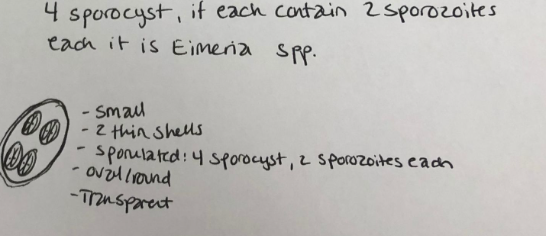 4 sporocyst, if each contain 2 sporozoites
each it is Eimeria spp.
- small
- 2 thin shells
- sporulated: 4 sporocyst, 2 sporozoites each
- oval/round
- Transparent